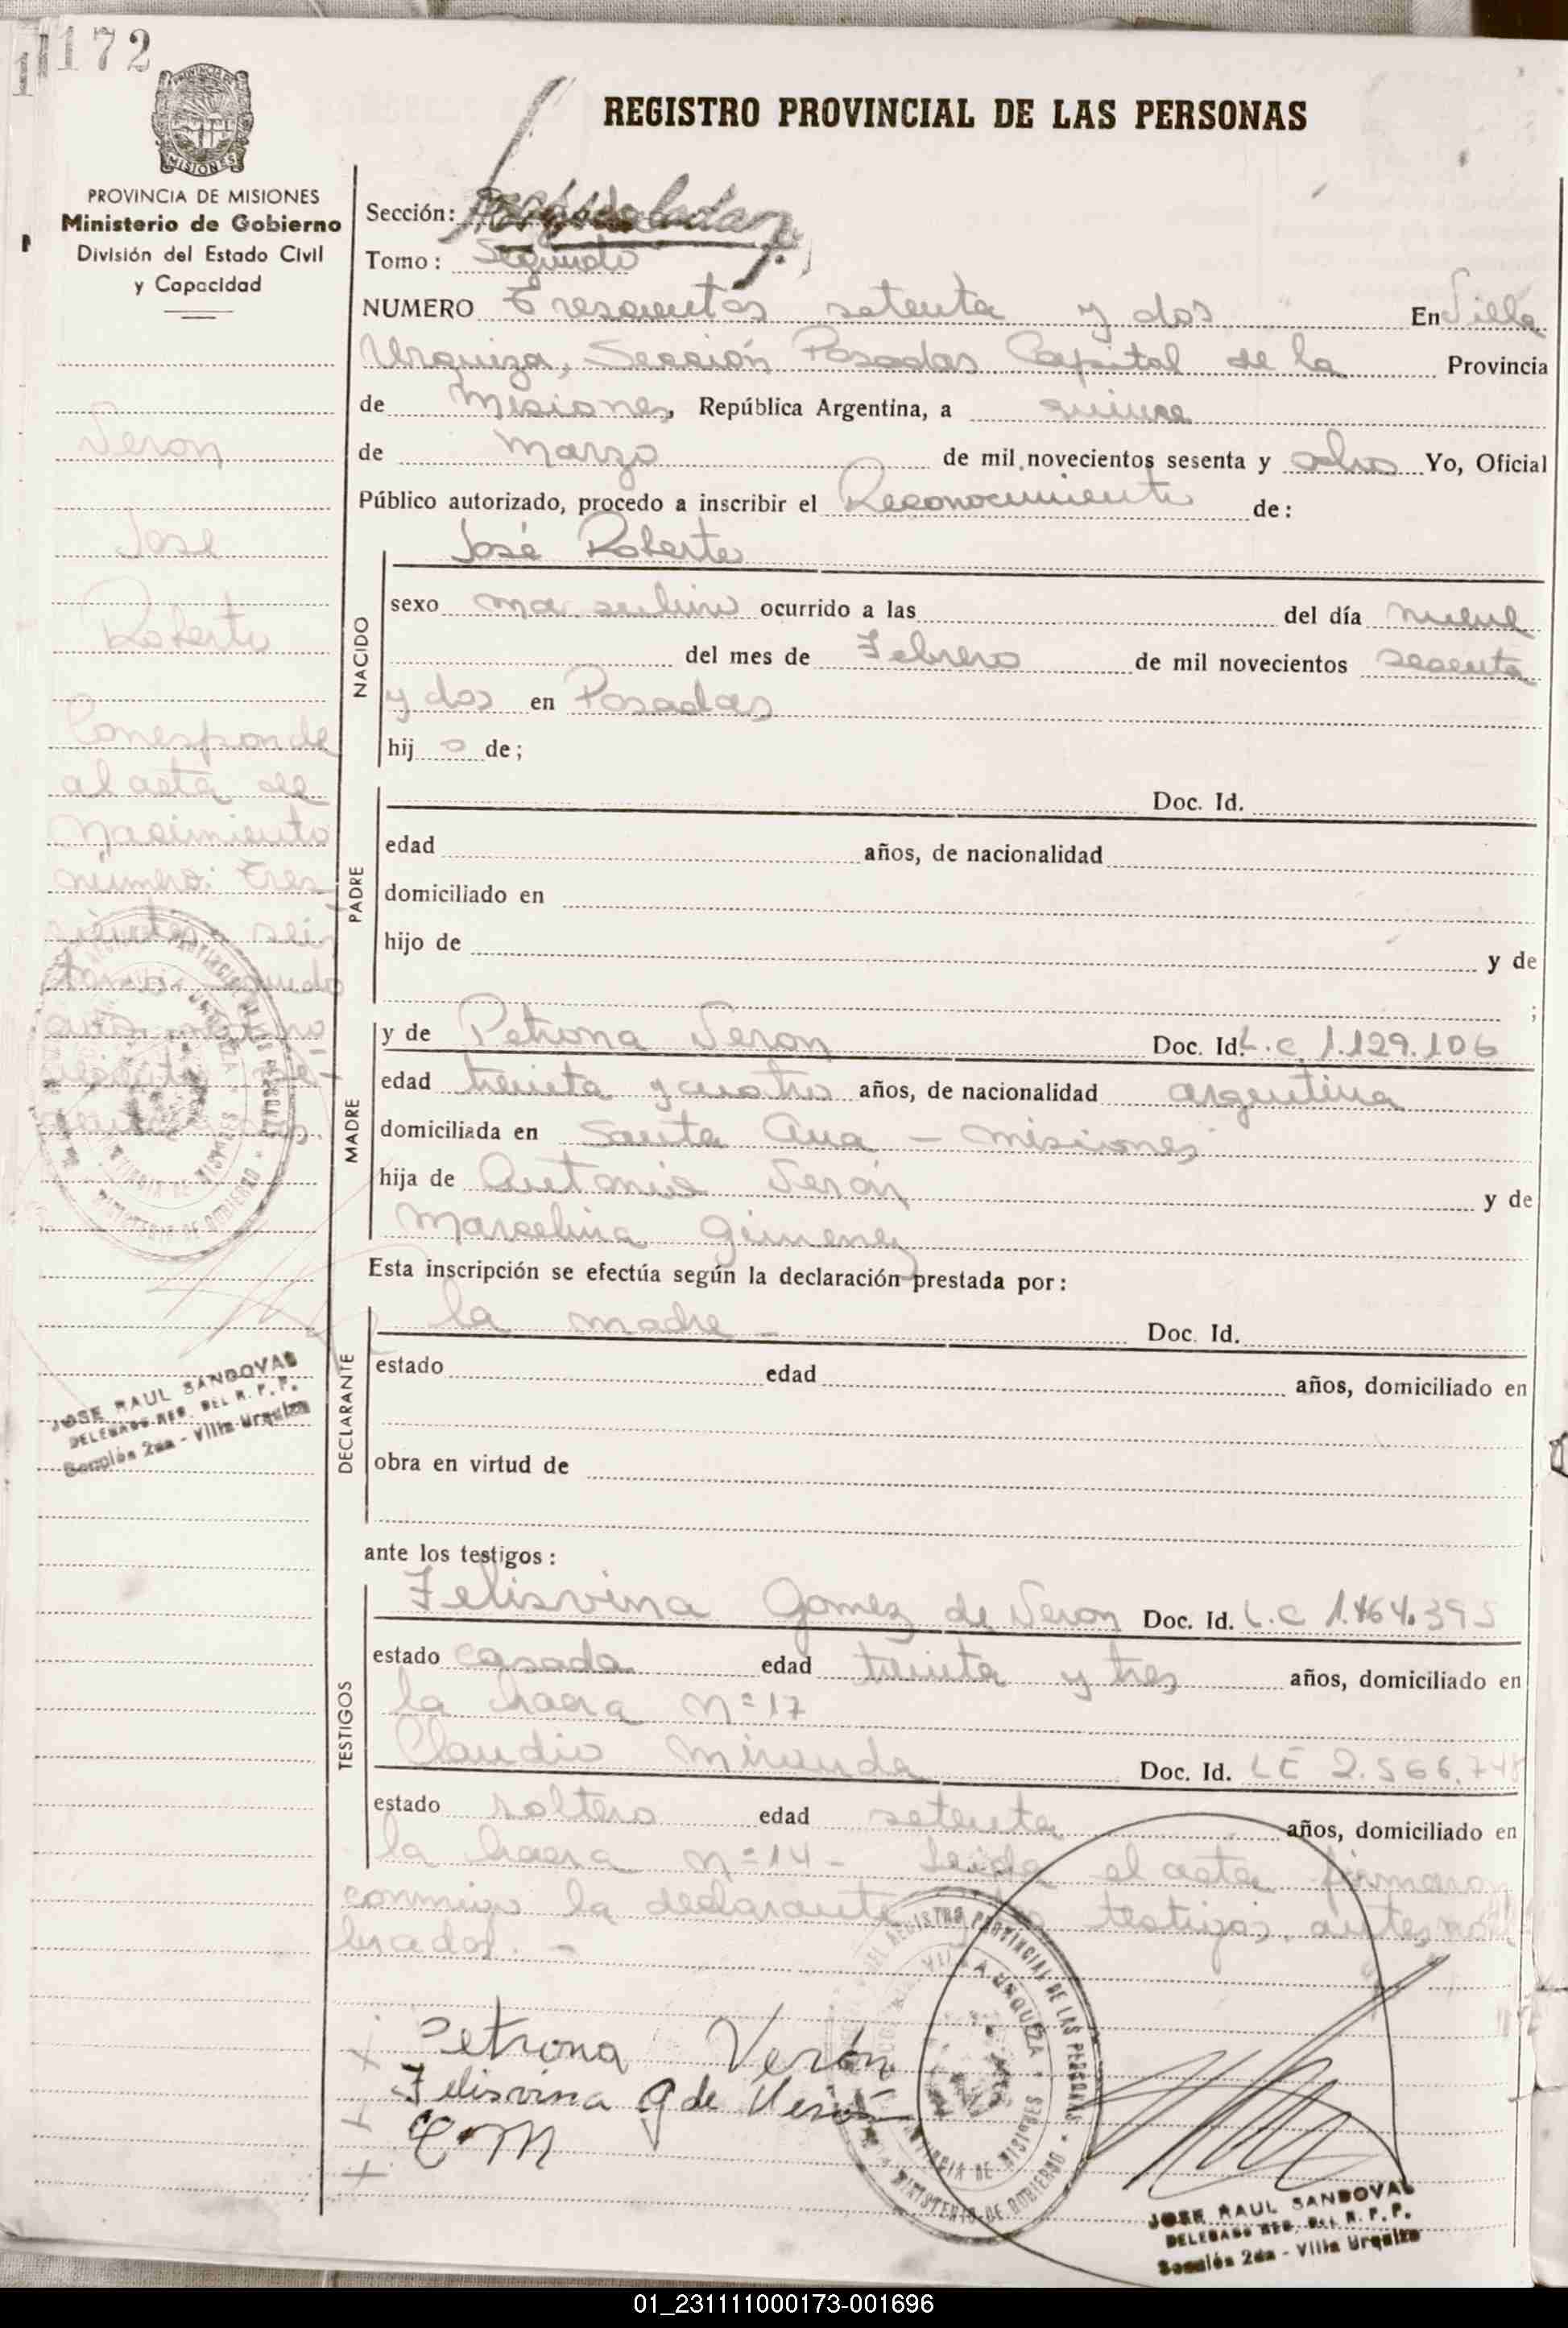 172
PROVINCIA DE MISIONES
Ministerio de Gobierno
División del Estado Civil
y Capacidad
Veron
José
Roberto
Corresponde
al acta de
nacimiento
número: tres
cientos seis
tomo segundo
REGISTRO PROVINCIAL DE LAS PERSONAS
Sección:
Tomo: Segundo
NUMERO Trescientos setenta y dos En Villa
Urquiza, Sección Posadas Capital de la Provincia
de Misiones, República Argentina, a quince
de Marzo de mil novecientos sesenta y ocho Yo, Oficial
Público autorizado, procedo a inscribir el Reconocimiento de:
José Roberto
NACIDO
sexo masculino ocurrido a las del día nueve
del mes de Febrero de mil novecientos sesenta
y dos en Posadas
hijo de;
PADRE
Doc. Id.
edad años, de nacionalidad
domiciliado en
hijo de y de
;
MADRE
y de Petrona Veron Doc. Id. L.C. 1.129.106
edad treinta y cuatro años, de nacionalidad argentina
domiciliada en Santa Ana - Misiones
hija de Antonio Verón y de
Marcelina Gimenez
Esta inscripción se efectúa según la declaración prestada por:
DECLARANTE
la madre - Doc. Id.
estado edad años, domiciliado en
obra en virtud de
ante los testigos:
TESTIGOS
Felisvina Gomez de Veron Doc. Id. L.C 1.464.395
estado casada edad treinta y tres años, domiciliado en
la chacra Nº 17
Claudio Miranda Doc. Id. LE 2.566.748
estado soltero edad setenta años, domiciliado en
la chacra Nº 14 - Leida el acta firmaron
conmigo la declarante testigos antes nom
brados. -
Petrona Verón
Felisvina G de Verón
C. M
JOSE RAUL SANDOVAL
DELEGADO REG. DEL R. P. P.
Sección 2da - Villa Urquiza
JOSE RAUL SANDOVAL
DELEGADO REG. DEL R. P. P.
Sección 2da - Villa Urquiza
01_231111000173-001696